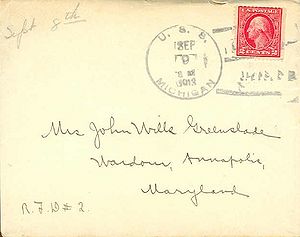 Sept 8th
U. S. S.
SEP
9
8 M
1913
MICHIGAN
U.S. POSTAGE
2 CENTS 2
Mrs John Wills Greenslade
Wardour, Annapolis,
Maryland
R.F.D # 2.